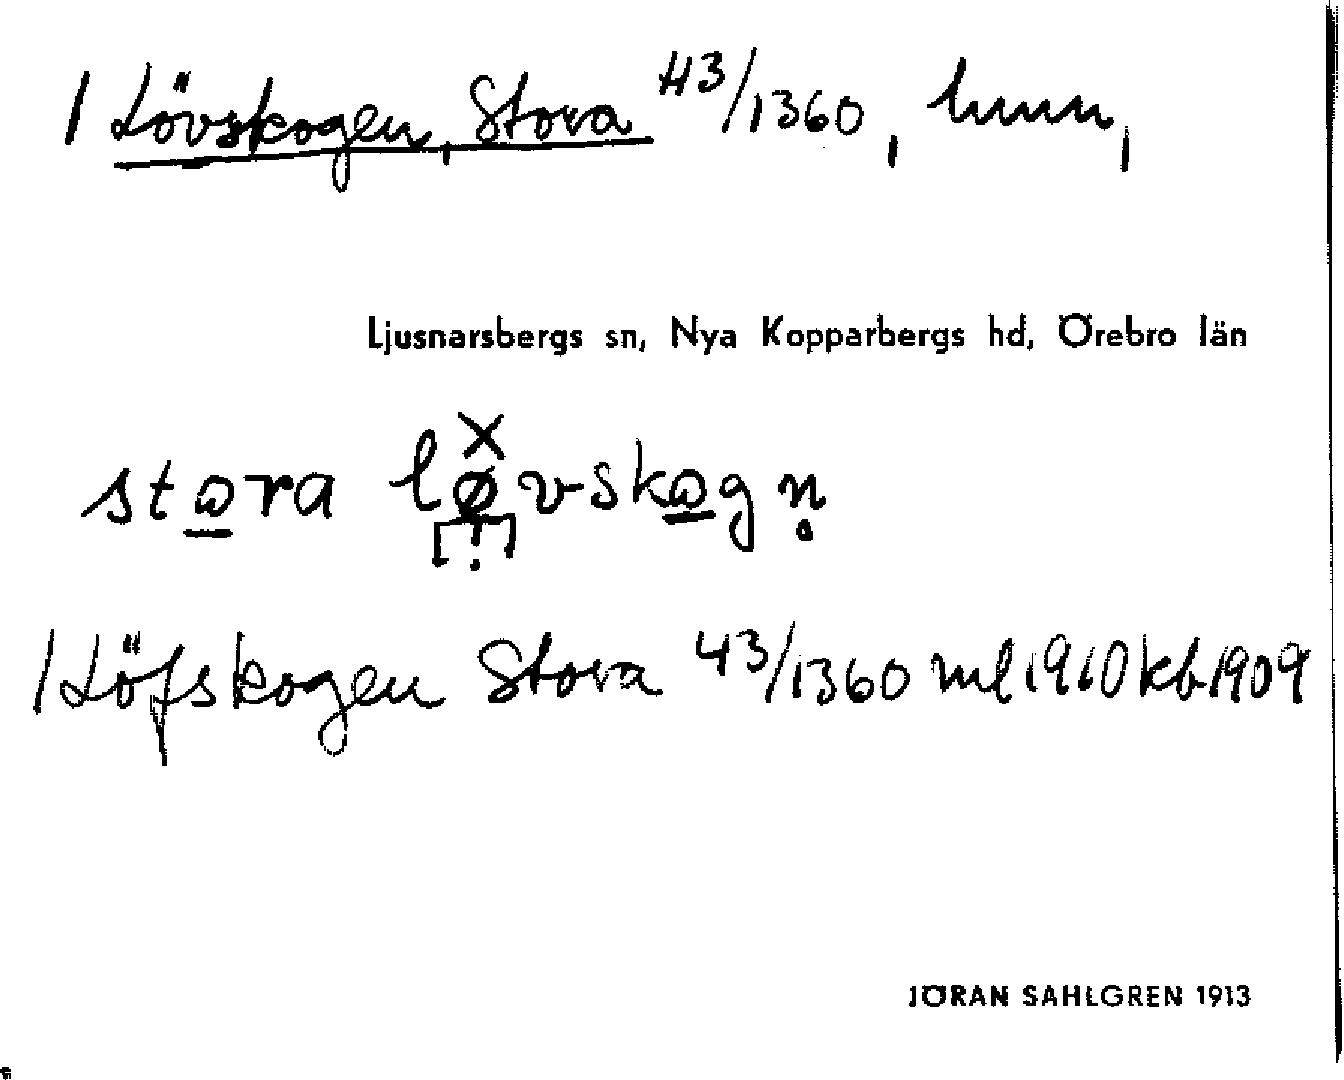 / Lövskogen, Stora 43/1360, hmn,
Ljusnarsbergs sn, Nya Kopparbergs hd, Örebro län
stora løvskogn̥
[!]
/ Löfskogen Stora 43/1360 ml 1910 kb 1909
JÖRAN SAHLGREN 1913